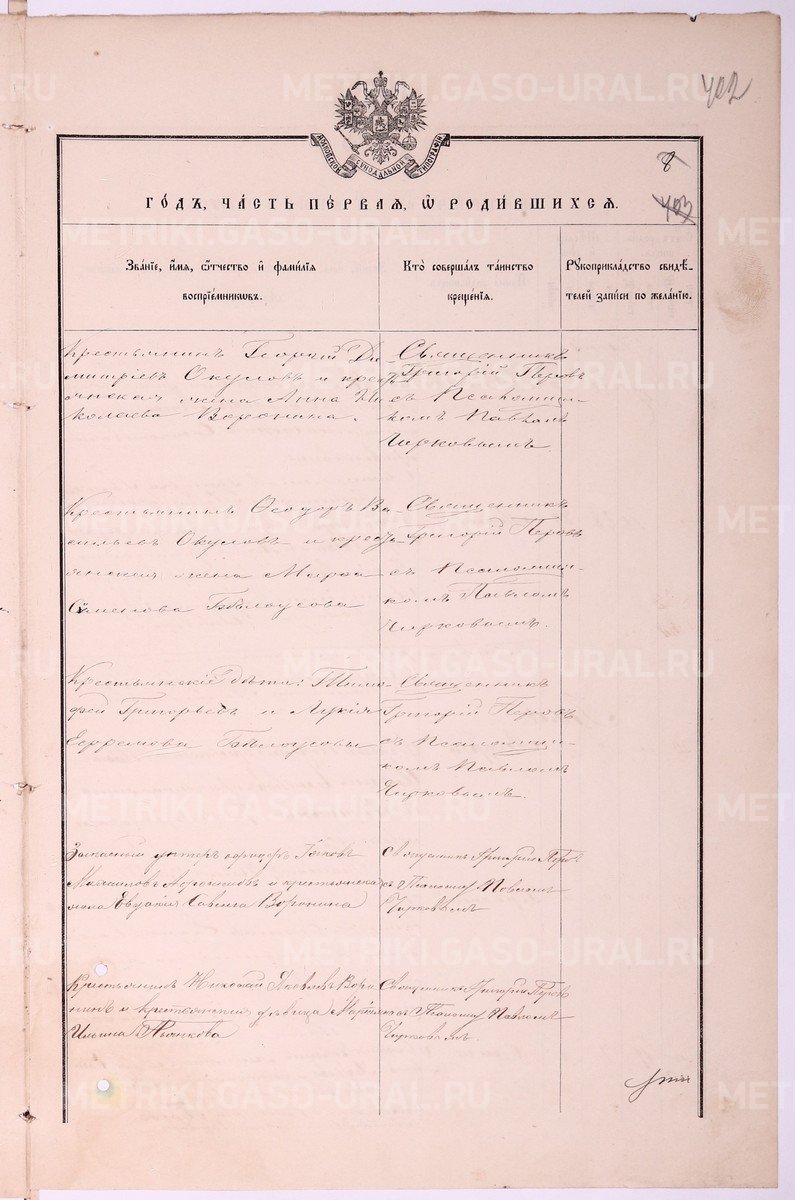 402
МОСКОВСКОЙ СѴНОДАЛЬНОЙ ТИПОГРАФІИ
8
403
ГОДЪ, ЧАСТЬ ПЕРВАЯ, Ѡ РОДИВШИХСЯ.
Званіе, имя, ѻтчество и фамилія
воспріемниковъ.
Кто совершалъ таинство
крещенія.
Рукоприкладство свидѣ-
телей записи по желанію.
Крестьянинъ Георгій Ди
митріевъ Окуловъ и кресть
янская жена Анна Ни
колаева Воронина.
Священникъ
Григорій Перовъ
съ Псаломщи-
комъ Павломъ
Чирковымъ.
Крестьянинъ Ѳеодоръ Ва-
сильевъ Окуловъ и кресть
янская жена Марѳа
Семенова Бѣлоусова
Священникъ
Григорій Перовъ
съ Псаломщи-
комъ Павломъ
Чирковымъ.
Крестьянскіе дѣти: Тимо
фей Григорьевъ и Лукія
Ефремова Бѣлоусовы
Священникъ
Григорій Перовъ
съ Псаломщи-
комъ Павломъ
Чирковымъ.
Запасный унтеръ офицеръ
Михайловъ и крестьянская
жена Евдокія Саввина Воронина
Священникъ Григорій Перов
Павломъ
Чирковымъ
Крестьянинъ Николай Яковлевъ Воро
нинъ и крестьянская дѣвица
Ильина
Священникъ Григорій Перов
Павломъ
Чирковымъ.
METRIKI.GASO-URAL.RU